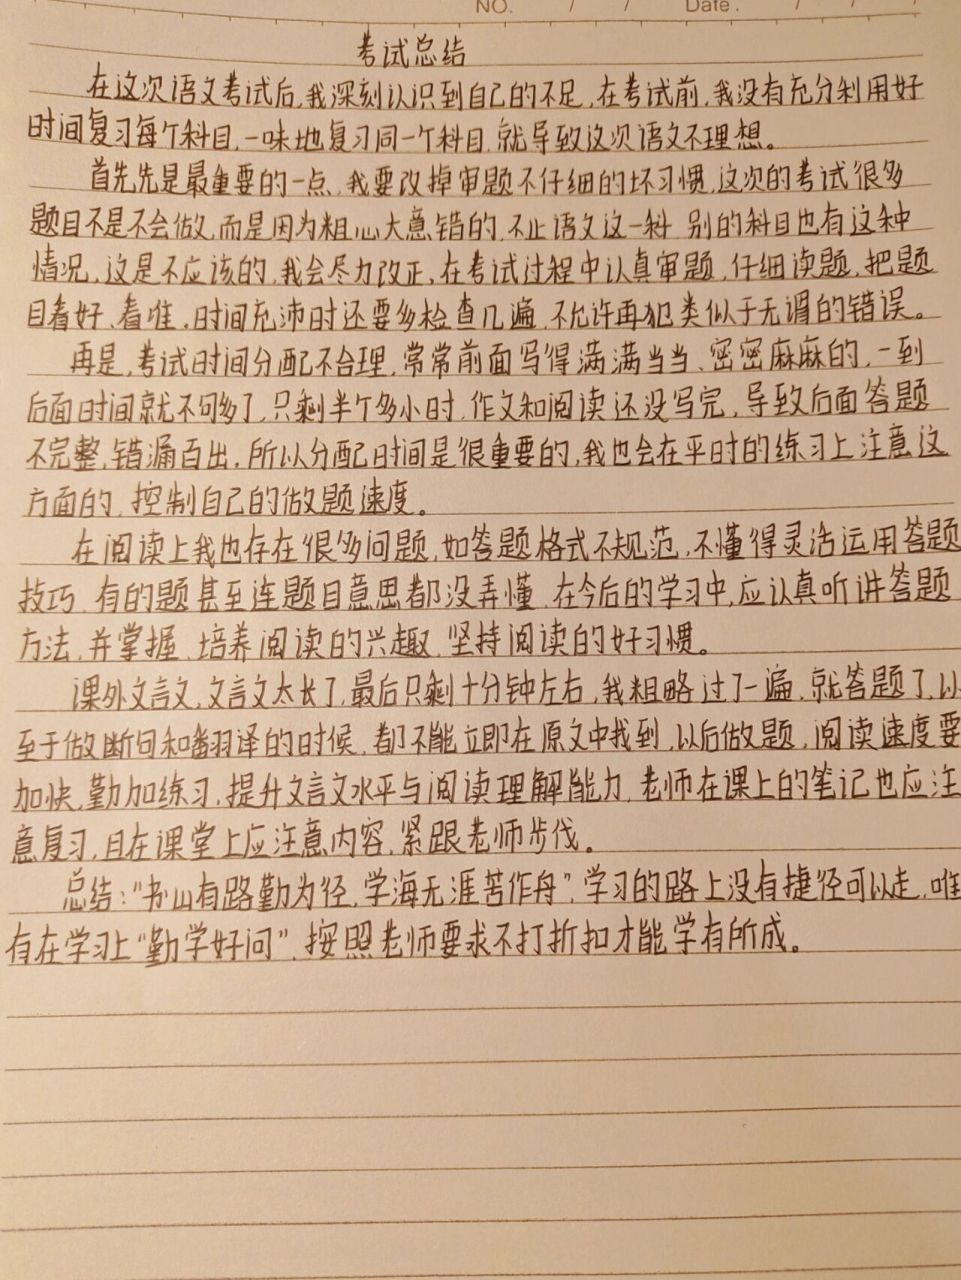 NO. / / Date. / /
考试总结
在这次语文考试后,我深刻认识到自己的不足,在考试前,我没有充分利用好
时间复习每个科目,一味地复习同一个科目,就导致这次语文不理想。
首先先是最重要的一点,我要改掉审题不仔细的坏习惯,这次的考试很多
题目不是不会做,而是因为粗心大意错的,不止语文这一科,别的科目也有这种
情况,这是不应该的,我会尽力改正,在考试过程中认真审题,仔细读题,把题
目看好、看准,时间充沛时还要多检查几遍,不允许再犯类似于无谓的错误。
再是,考试时间分配不合理,常常前面写得满满当当、密密麻麻的,一到
后面时间就不够了,只剩半个多小时,作文和阅读还没写完,导致后面答题
不完整,错漏百出,所以分配时间是很重要的,我也会在平时的练习上注意这
方面的,控制自己的做题速度。
在阅读上我也存在很多问题,如答题格式不规范,不懂得灵活运用答题
技巧,有的题甚至连题目意思都没弄懂,在今后的学习中,应认真听讲答题
方法,并掌握,培养阅读的兴趣,坚持阅读的好习惯。
课外文言文,文言文太长了,最后只剩十分钟左右,我粗略过了一遍,就答题了,以
至于做断句和翻译的时候,都不能立即在原文中找到,以后做题,阅读速度要
加快,勤加练习,提升文言文水平与阅读理解能力,老师在课上的笔记也应注
意复习,且在课堂上应注意内容,紧跟老师步伐。
总结:“书山有路勤为径,学海无涯苦作舟”,学习的路上没有捷径可以走,唯
有在学习上“勤学好问”,按照老师要求不打折扣才能学有所成。